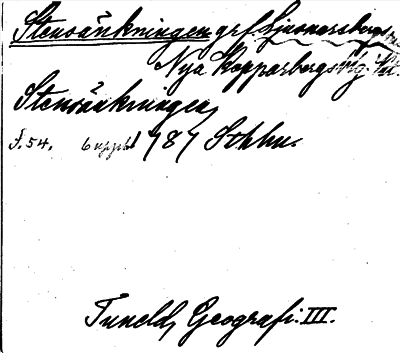 Stensänkningen grf Ljusnarsbergs
Nya Kopparbergs
Stensänkningen,
s. 54. 6 uppl. 1787 Sthlm.
Tuneld, Geografi. III.